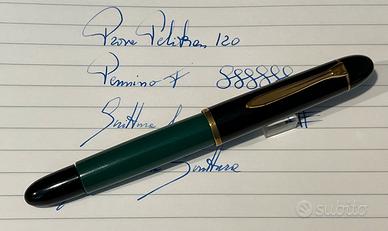 Prova Pelikan 120
Pennino F 888888
Scrittura
F
Scrittura
subito